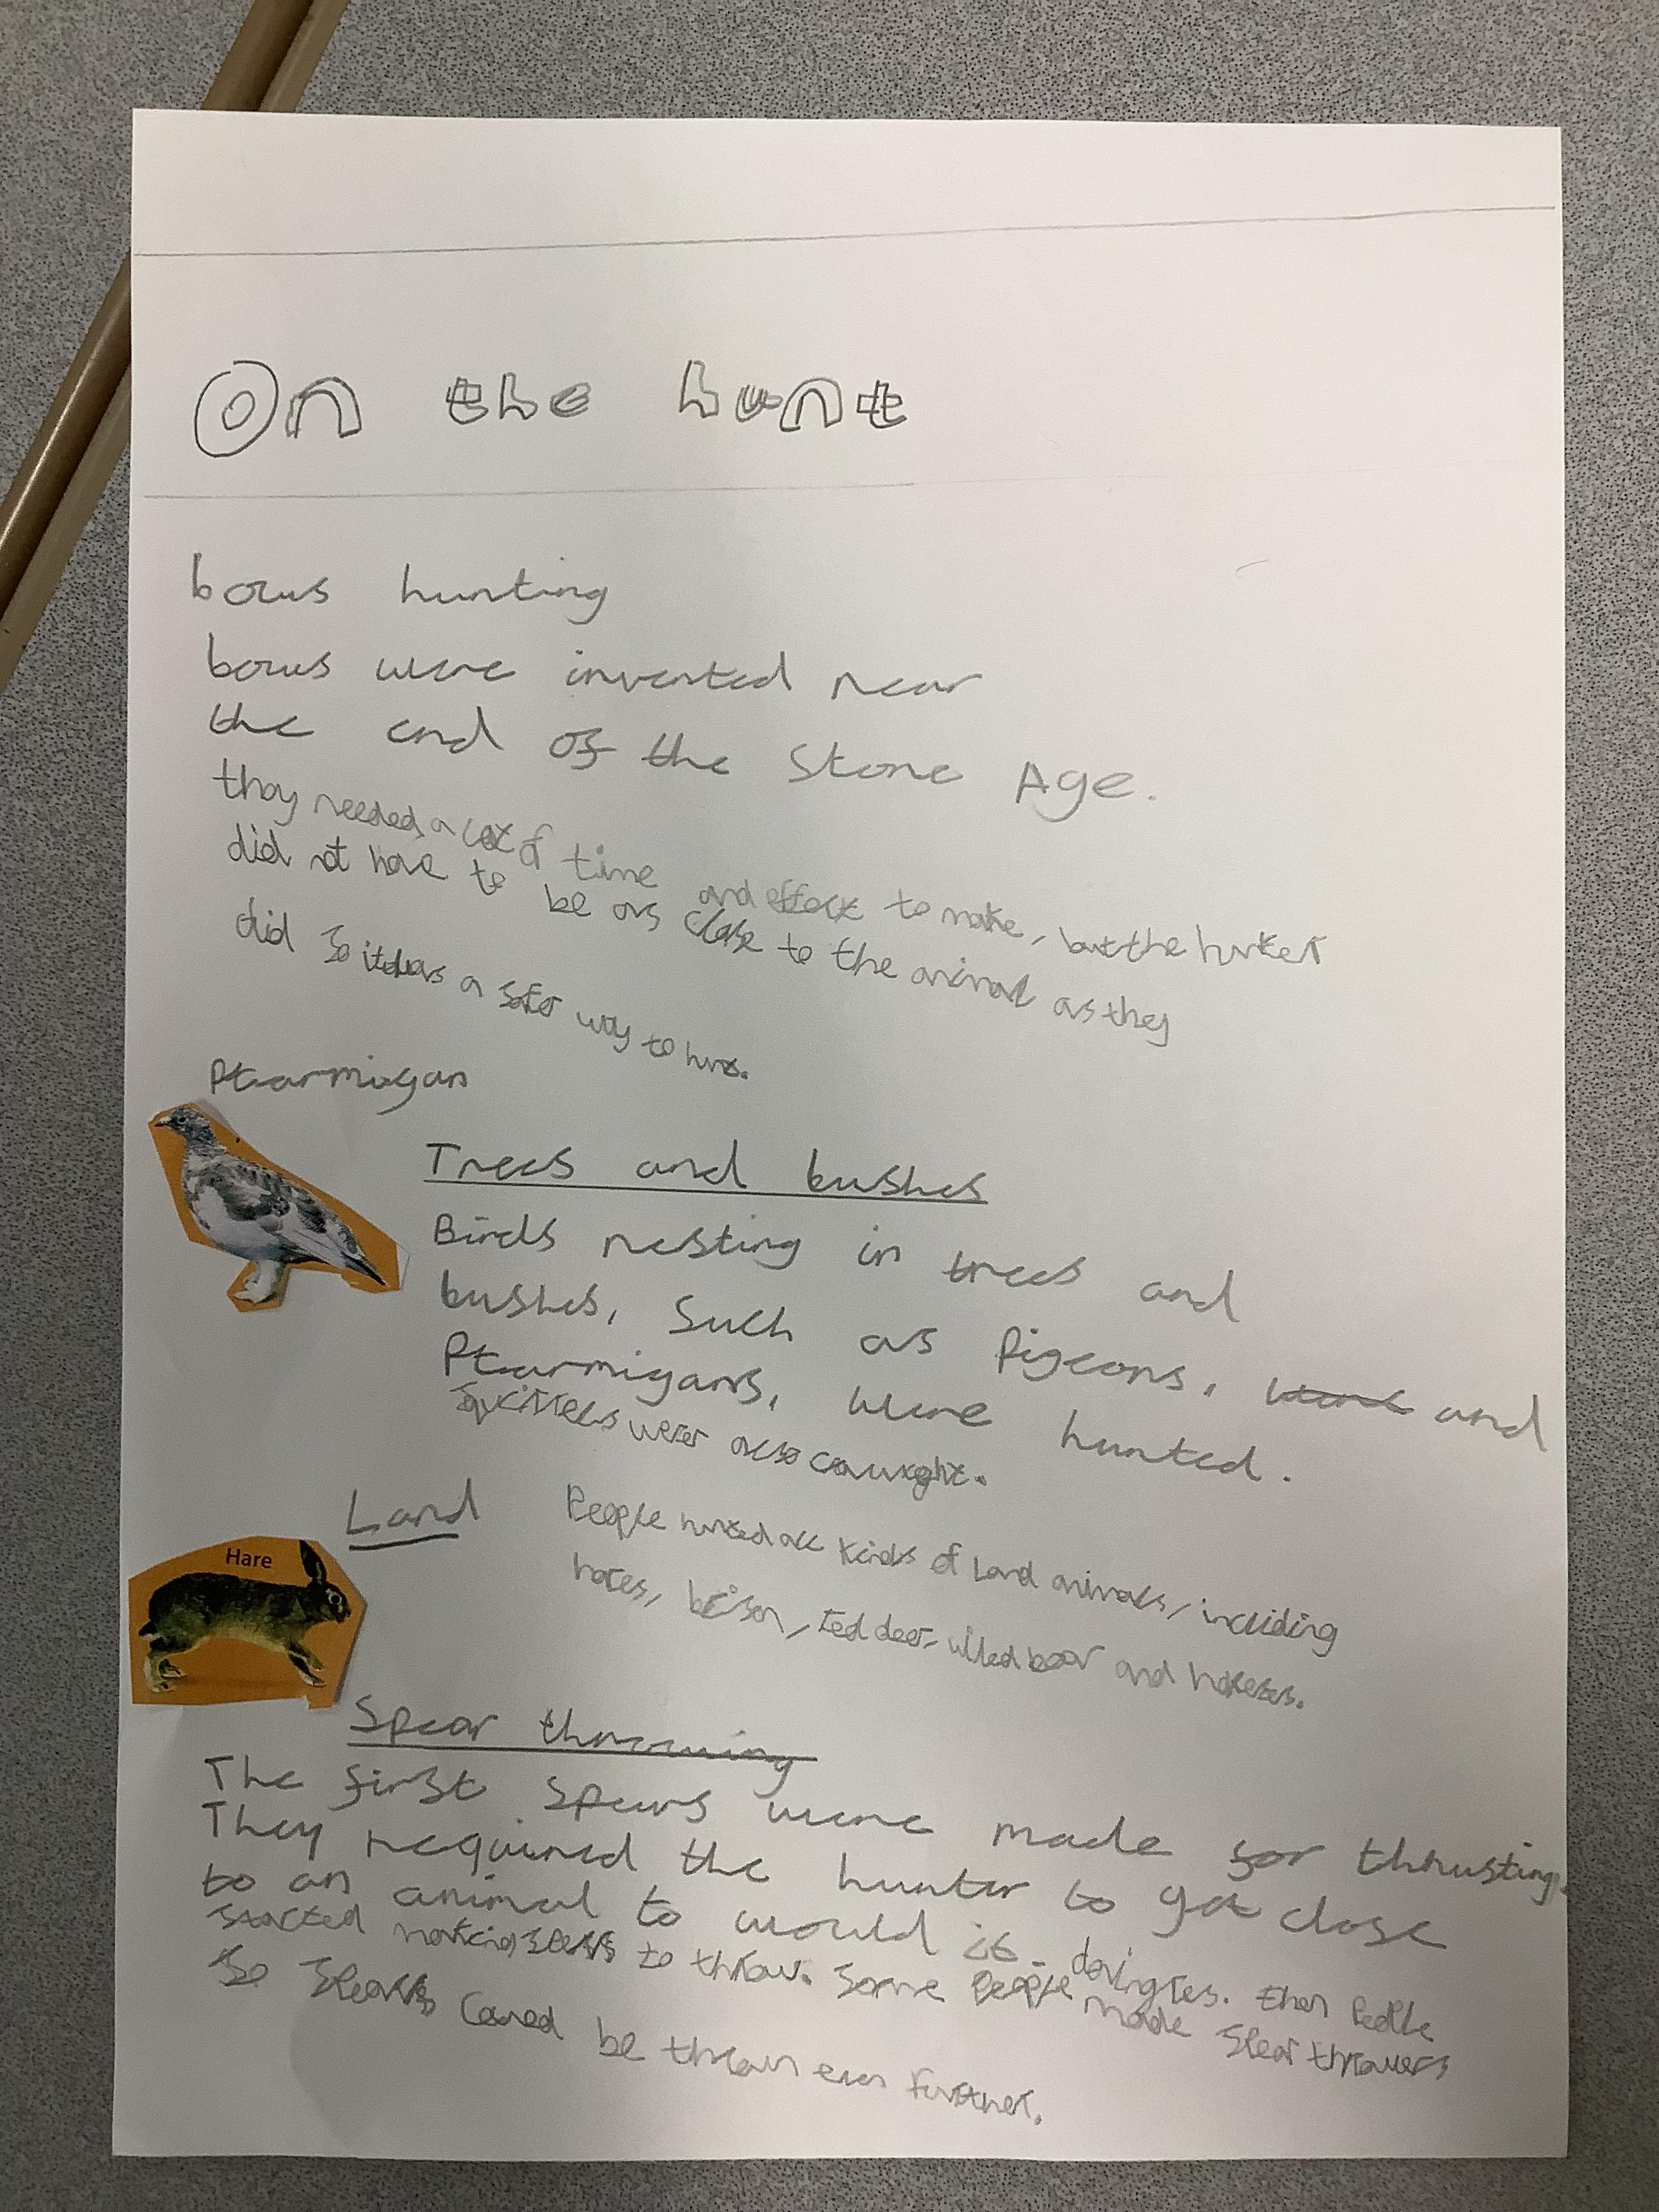 On the hunt
bows hunting
bows were invented near
the end of the Stone Age.
they needed a lot of time and effort to make, but the hunter
did not have to be as close to the animal as they
did so it was a safer way to hunt.
Ptarmigan
Trees and bushes
Birds nesting in trees and
bushes, such as Pigeons, and
Ptarmigans, were hunted.
Squirrels were also caught.
Land
People hunted all kinds of Land animals, including
hares, bison, red deer, wiled boar and horeses.
Hare
Spear throwing
The first spears were made for thrusting.
They required the hunter to get close
to an animal to would it. Then People
started making spears to throw. Some People made Spear throwers
So Spears coured be thrown even further.